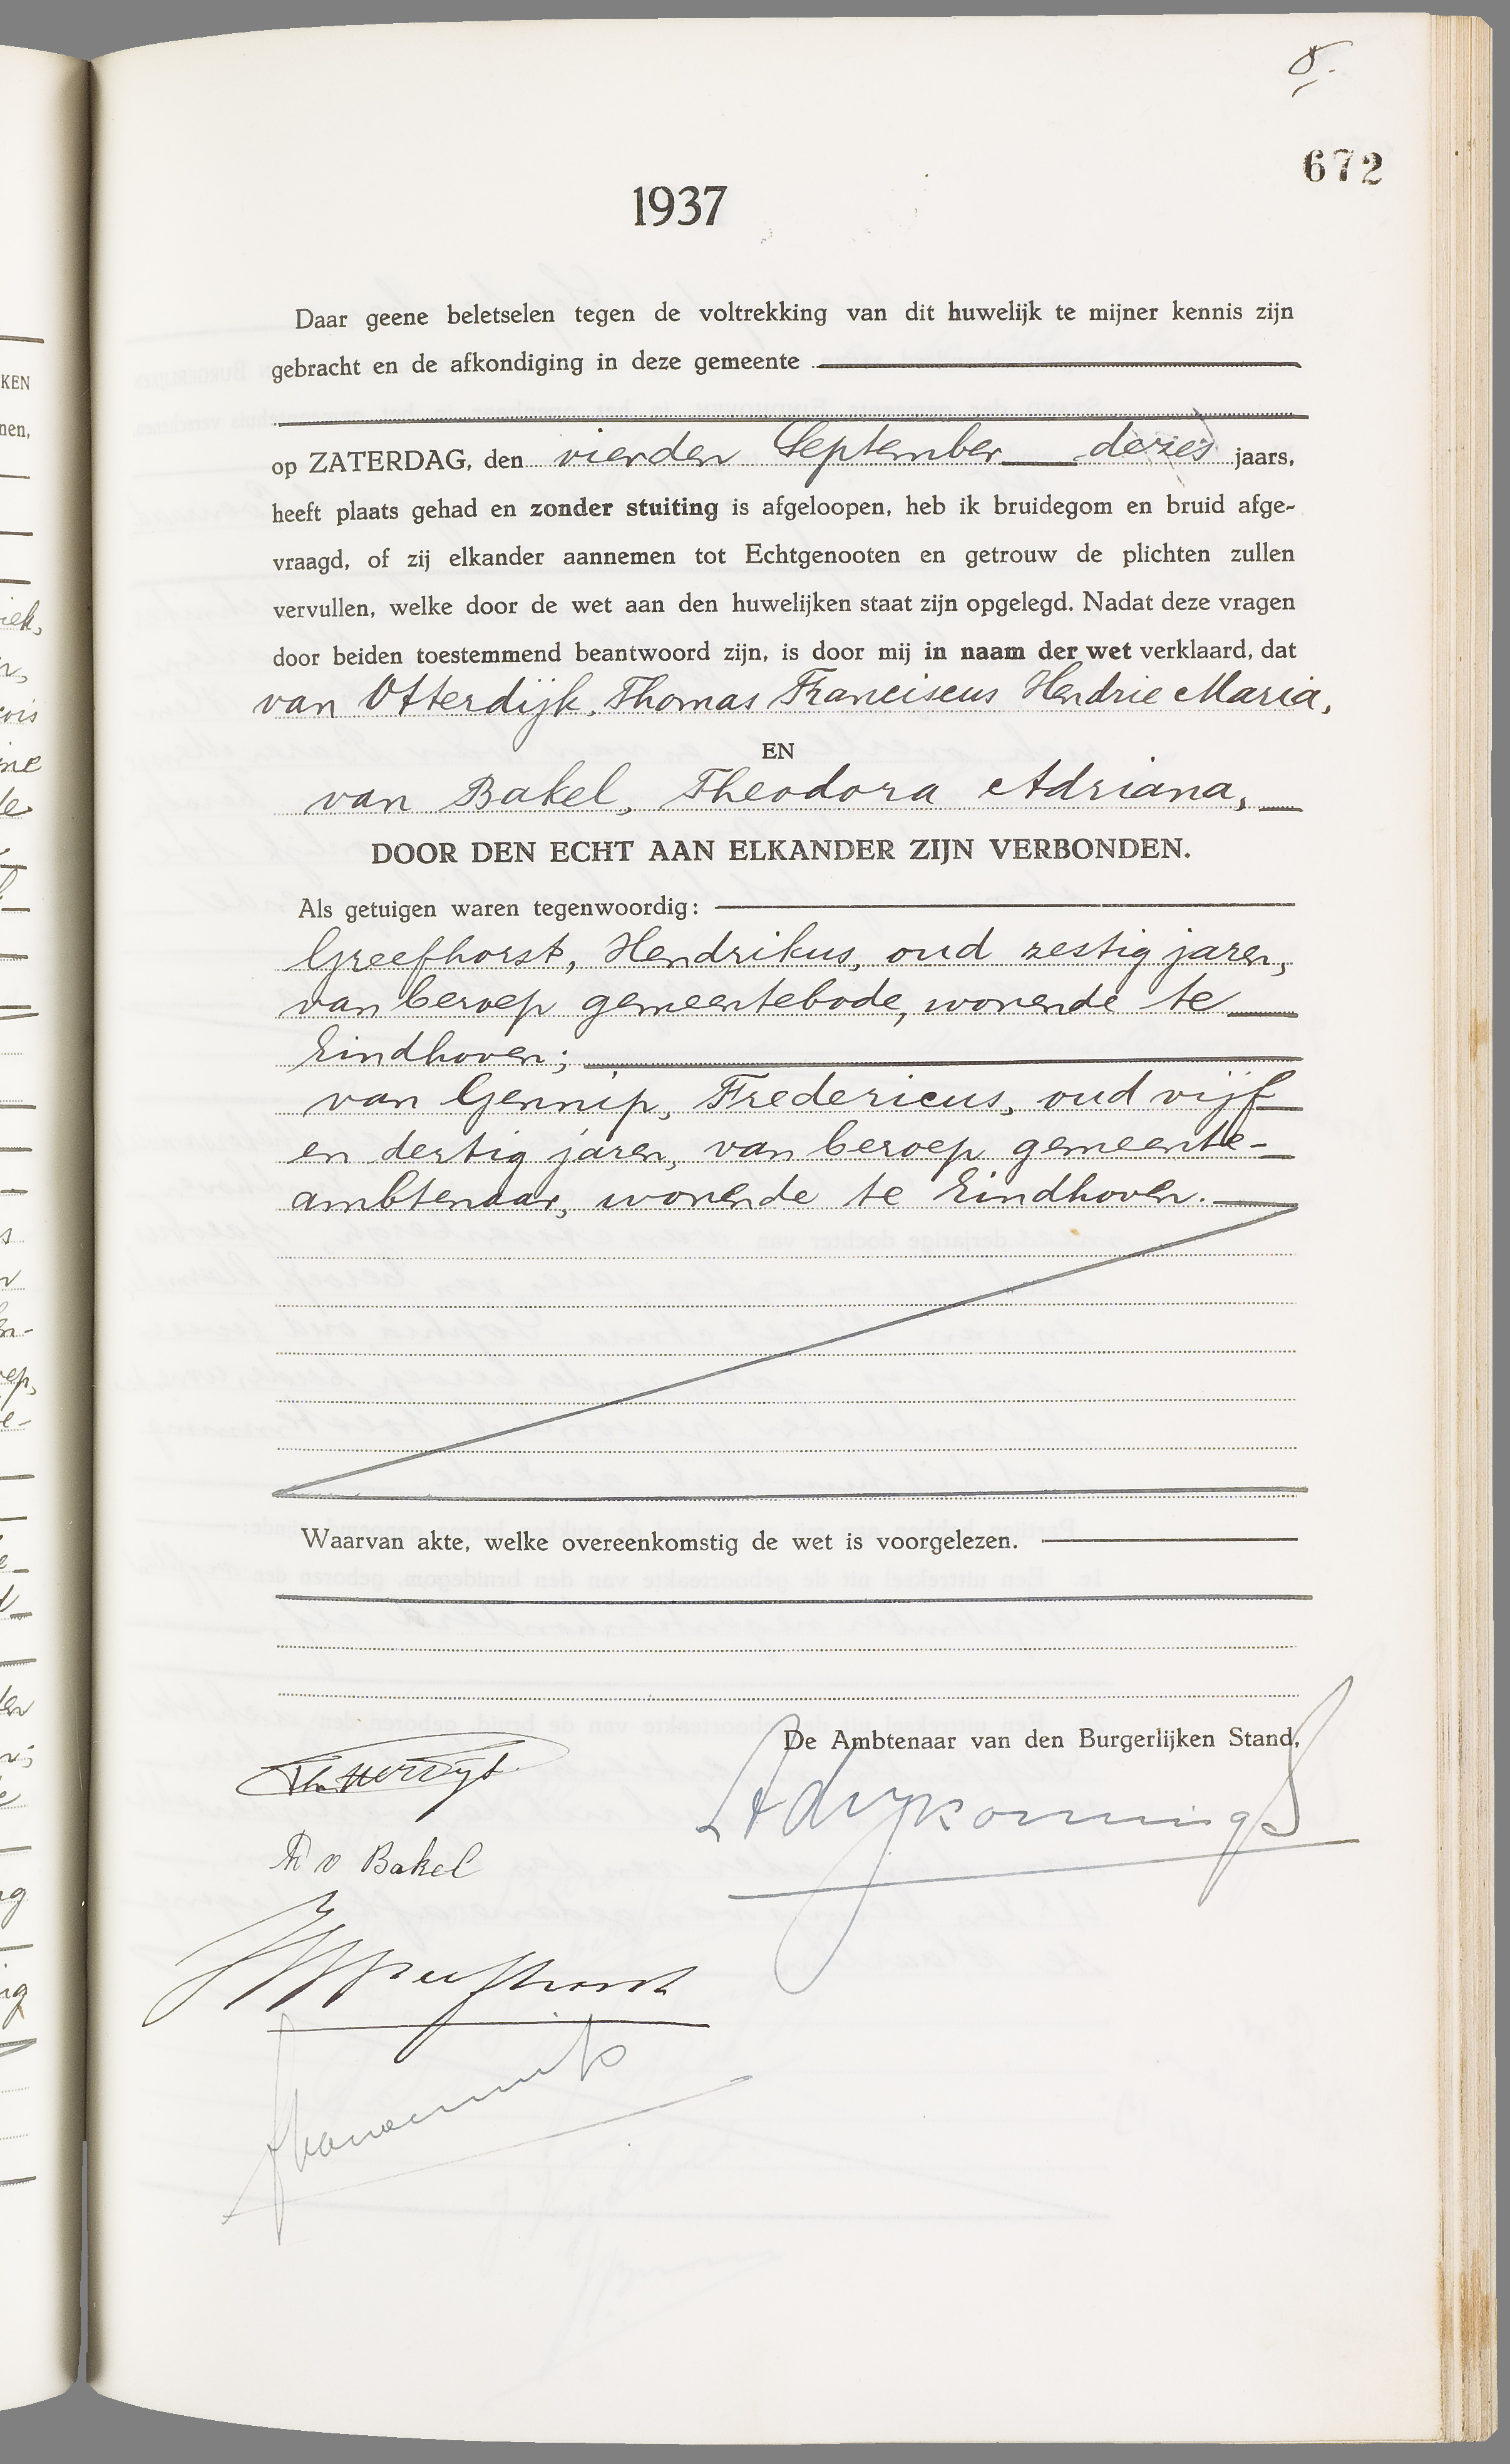 8.
672
1937
Daar geene beletselen tegen de voltrekking van dit huwelijk te mijner kennis zijn
gebracht en de afkondiging in deze gemeente
op ZATERDAG, den vierden September dezes jaars,
heeft plaats gehad en zonder stuiting is afgeloopen, heb ik bruidegom en bruid afge-
vraagd, of zij elkander aannemen tot Echtgenooten en getrouw de plichten zullen
vervullen, welke door de wet aan den huwelijken staat zijn opgelegd. Nadat deze vragen
door beiden toestemmend beantwoord zijn, is door mij in naam der wet verklaard, dat
van Otterdijk, Thomas Franciscus Hendrie Maria,
EN
van Bakel, Theodora Adriana,
DOOR DEN ECHT AAN ELKANDER ZIJN VERBONDEN.
Als getuigen waren tegenwoordig:
Greefhorst, Hendrikus, oud zestig jaren,
van beroep gemeentebode, wonende te
Eindhoven;
van Gennip, Fredericus, oud vijf
en dertig jaren, van beroep gemeente-
ambtenaar, wonende te Eindhoven.
Waarvan akte, welke overeenkomstig de wet is voorgelezen.
De Ambtenaar van den Burgerlijken Stand,
Th v Bakel
KEN
nen,